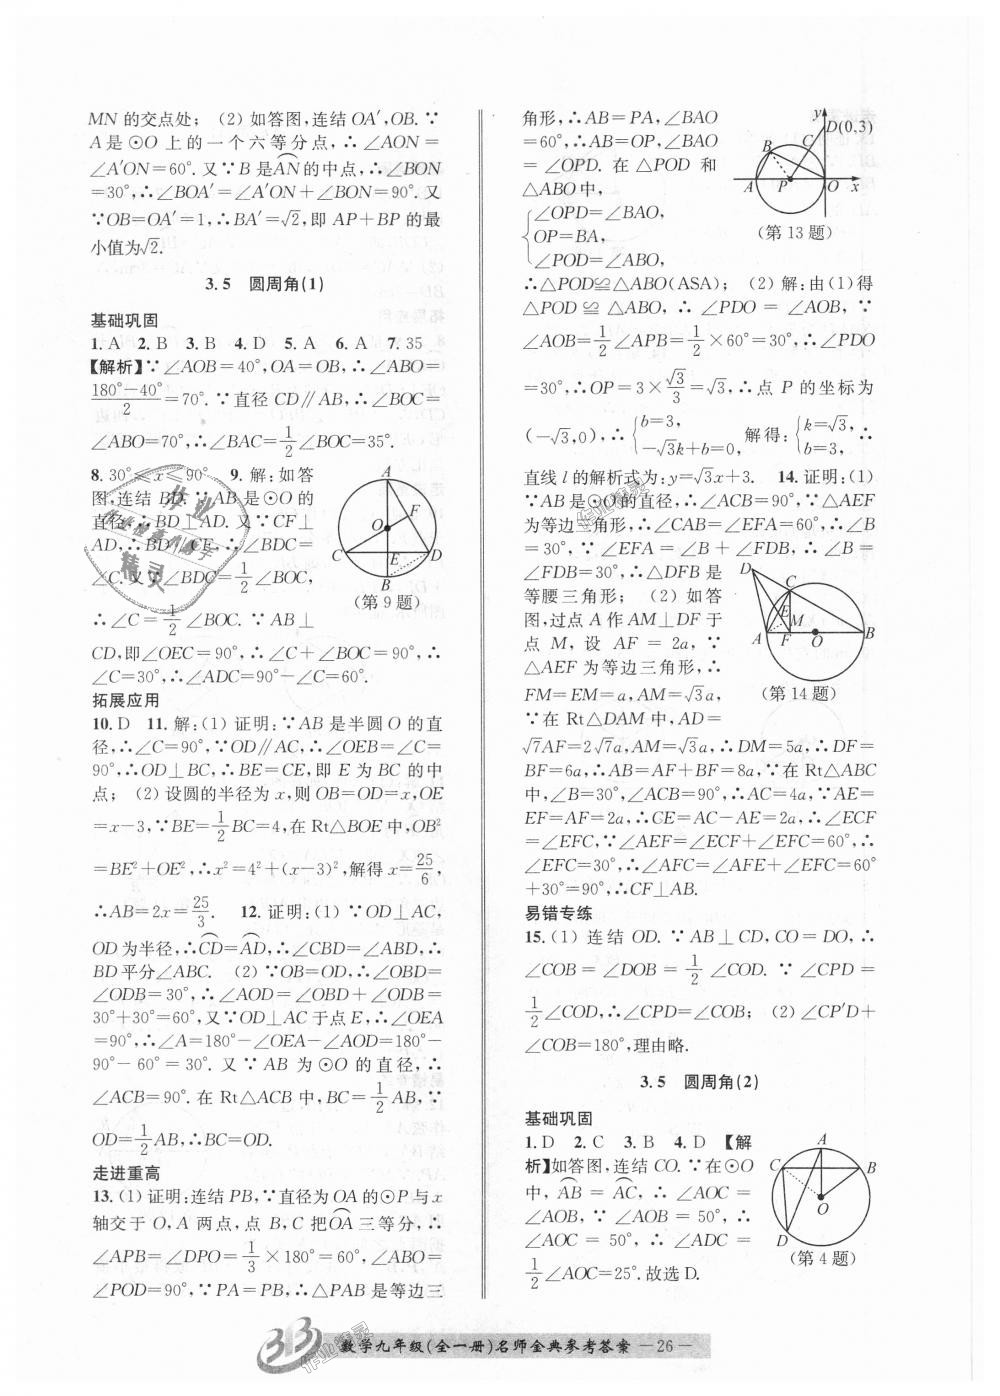 MN的交点处；(2)如答图，连结OA′，OB.∵
A是⊙O上的一个六等分点，∴∠AON=
∠A′ON=60°.又∵B是A͡N的中点，∴∠BON
=30°，∴∠BOA′=∠A′ON+∠BON=90°.又
∵OB=OA′=1，∴BA′=√2，即AP+BP的最
小值为√2.
3.5 圆周角(1)
基础巩固
1.A 2.B 3.B 4.D 5.A 6.A 7.35
【解析】∵∠AOB=40°，OA=OB，∴∠ABO=
(180°-40°)/2=70°.∵直径CD∥AB，∴∠BOC=
∠ABO=70°，∴∠BAC=1/2∠BOC=35°.
8.30°≤x≤90° 9.解：如答
图，连结BD.∵AB是⊙O的
直径，∴BD⊥AD.又∵CF⊥
AD，∴BD∥CF，∴∠BDC=
∠C.又∵∠BDC=1/2∠BOC，
∴∠C=1/2∠BOC.∵AB⊥
CD，即∠OEC=90°，∴∠C+∠BOC=90°，∴
∠C=30°，∴∠ADC=90°-∠C=60°.
A
O F
C E D
B
(第9题)
拓展应用
10.D 11.解：(1)证明：∵AB是半圆O的直
径，∴∠C=90°，∵OD∥AC，∴∠OEB=∠C=
90°，∴OD⊥BC，∴BE=CE，即E为BC的中
点；(2)设圆的半径为x，则OB=OD=x，OE
=x-3，∵BE=1/2BC=4，在Rt△BOE中，OB²
=BE²+OE²，∴x²=4²+(x-3)²，解得x=25/6，
∴AB=2x=25/3. 12.证明：(1)∵OD⊥AC，
OD为半径，∴C͡D=A͡D，∴∠CBD=∠ABD，∴
BD平分∠ABC. (2)∵OB=OD，∴∠OBD=
∠ODB=30°，∴∠AOD=∠OBD+∠ODB=
30°+30°=60°，又∵OD⊥AC于点E，∴∠OEA
=90°，∴∠A=180°-∠OEA-∠AOD=180°-
90°-60°=30°.又∵AB为⊙O的直径，∴
∠ACB=90°.在Rt△ACB中，BC=1/2AB，∵
OD=1/2AB，∴BC=OD.
走进重高
13.(1)证明：连结PB，∵直径为OA的⊙P与x
轴交于O，A两点，点B，C把O͡A三等分，∴
∠APB=∠DPO=1/3×180°=60°，∠ABO=
∠POD=90°，∵PA=PB，∴△PAB是等边三
角形，∴AB=PA，∠BAO
=60°，∴AB=OP，∠BAO
=∠OPD.在△POD和
△ABO中，
{∠OPD=∠BAO，
OP=BA，
∠POD=∠ABO，
y
D(0,3)
B C
A P O x
(第13题)
∴△POD≌△ABO(ASA)；(2)解：由(1)得
△POD≌△ABO，∴∠PDO=∠AOB，∵
∠AOB=1/2∠APB=1/2×60°=30°，∴∠PDO
=30°，∴OP=3×√3/3=√3，∴点P的坐标为
(-√3,0)，∴{b=3，-√3k+b=0，解得：{k=√3，b=3，∴
直线l的解析式为：y=√3x+3. 14.证明：(1)
∵AB是⊙O的直径，∴∠ACB=90°，∵△AEF
为等边三角形，∴∠CAB=∠EFA=60°，∴∠B
=30°，∵∠EFA=∠B+∠FDB，∴∠B=
∠FDB=30°，∴△DFB是
等腰三角形；(2)如答
图，过点A作AM⊥DF于
点M，设AF=2a，∵
△AEF为等边三角形，∴
FM=EM=a，AM=√3a，
∵在Rt△DAM中，AD=
√7AF=2√7a，AM=√3a，∴DM=5a，∴DF=
BF=6a，∴AB=AF+BF=8a，∵在Rt△ABC
中，∠B=30°，∠ACB=90°，∴AC=4a，∵AE=
EF=AF=2a，∴CE=AC-AE=2a，∴∠ECF
=∠EFC，∵∠AEF=∠ECF+∠EFC=60°，∴
∠EFC=30°，∴∠AFC=∠AFE+∠EFC=60°
+30°=90°，∴CF⊥AB.
D C
E M
A F O B
(第14题)
易错专练
15.(1)连结OD.∵AB⊥CD，CO=DO，∴
∠COB=∠DOB=1/2∠COD.∵∠CPD=
1/2∠COD，∴∠CPD=∠COB；(2)∠CP′D+
∠COB=180°，理由略.
3.5 圆周角(2)
基础巩固
1.D 2.C 3.B 4.D 【解
析】如答图，连结CO.∵在⊙O
中，A͡B=A͡C，∴∠AOC=
∠AOB，∵∠AOB=50°，∴
∠AOC=50°，∴∠ADC=
1/2∠AOC=25°.故选D.
A
C B
O
D
(第4题)
作业精灵
3B
数学九年级(全一册)名师金典参考答案 —26—